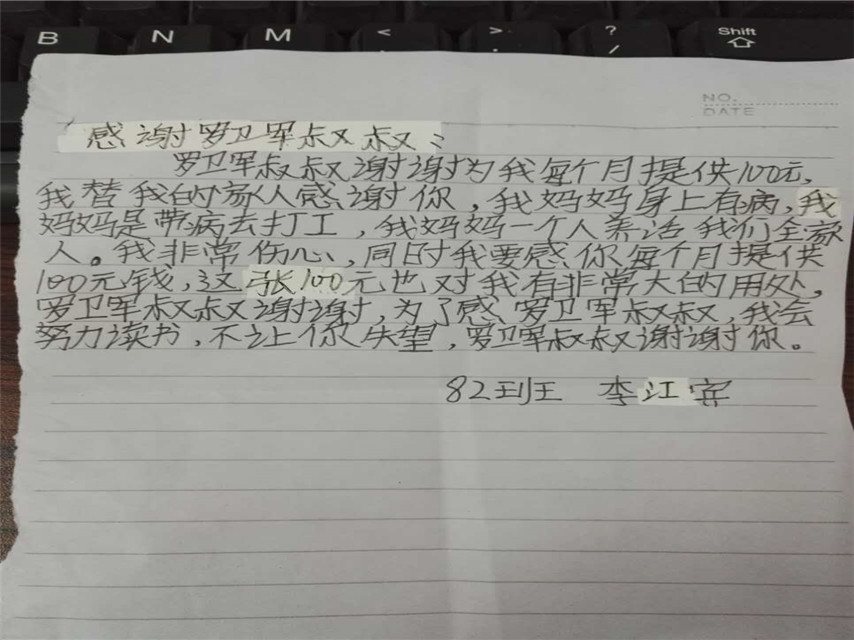 B N M < > ? / Shift
NO.
DATE
感谢罗卫军叔叔：
罗卫军叔叔谢谢为我每个月提供100元,
我替我的家人感谢你，我妈妈身上有病,我
妈妈是带病去打工，我妈妈一个人养活我们全家
人。我非常伤心,同时我要感你每个月提供
100元钱,这张100元也对我有非常大的用处,
罗卫军叔叔谢谢,为了感罗卫军叔叔,我会
努力读书,不让你失望,罗卫军叔叔谢谢你。
82班 李江宾